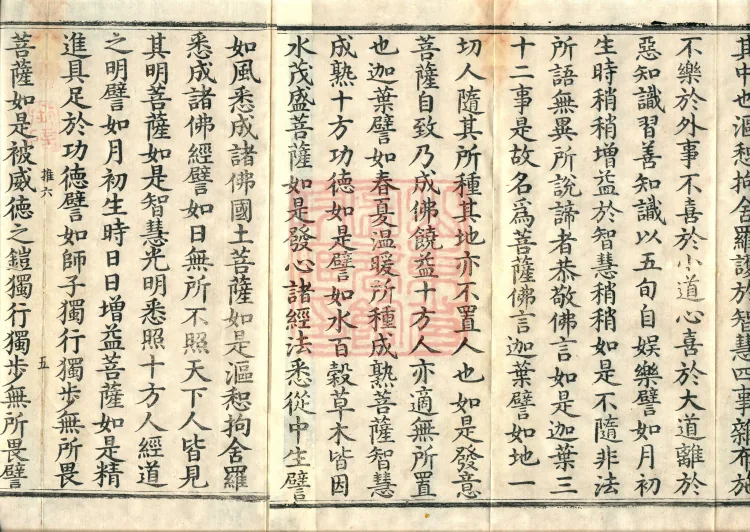 其中也漚惒拘舍羅護於智慧四事雜布施
不樂於外事不喜於小道心喜於大道離於
惡知識習善知識以五旬自娛樂譬如月初
生時稍稍增益於智慧稍稍如是不隨非法
所語無異所說諦者恭敬佛言如是迦葉三
十二事是故名爲菩薩佛言迦葉譬如地一
切人隨其所種其地亦不置人也如是發意
菩薩自致乃成佛饒益十方人亦適無所置
也迦葉譬如春夏温暖所種成熟菩薩智慧
成熟十方功德如是譬如水百穀草木皆因
水茂盛菩薩如是發心諸經法悉從中生譬
如風悉成諸佛國土菩薩如是漚惒拘舍羅
悉成諸佛經譬如日無所不照天下人皆見
其明菩薩如是智慧光明悉照十方人經道
之明譬如月初生時日日增益菩薩如是精
進具足於功德譬如師子獨行獨步無所畏
推六
五
菩薩如是被威德之鎧獨行獨步無所畏譬